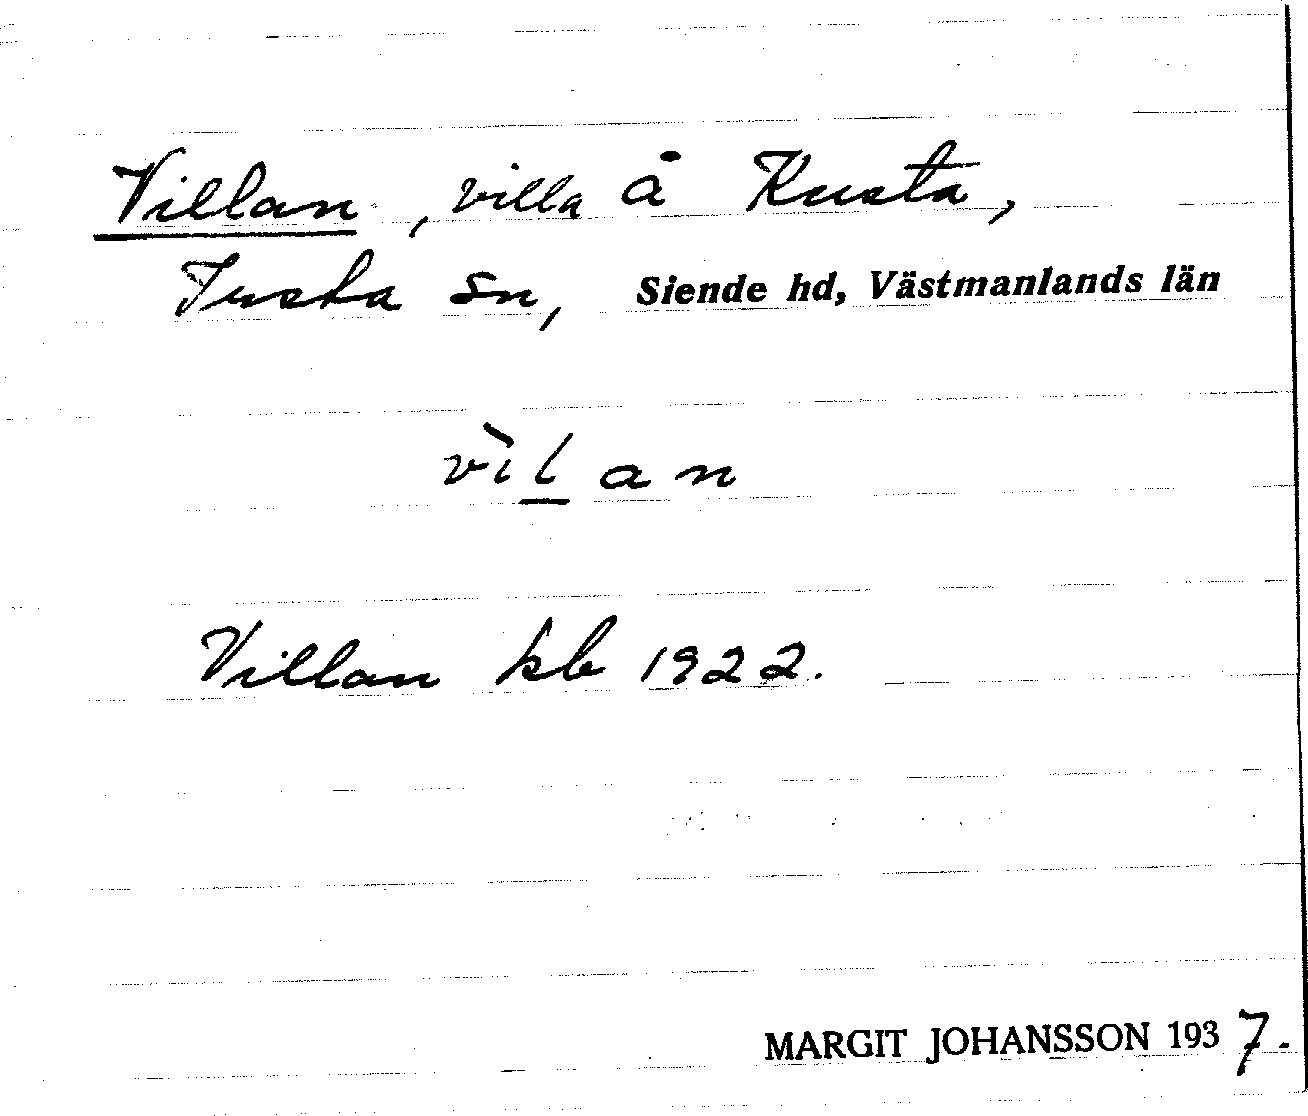 Villan, villa å Kusta,
Tusta sn, Siende hd, Västmanlands län
vìlan
Villan kb 1922.
MARGIT JOHANSSON 1937.